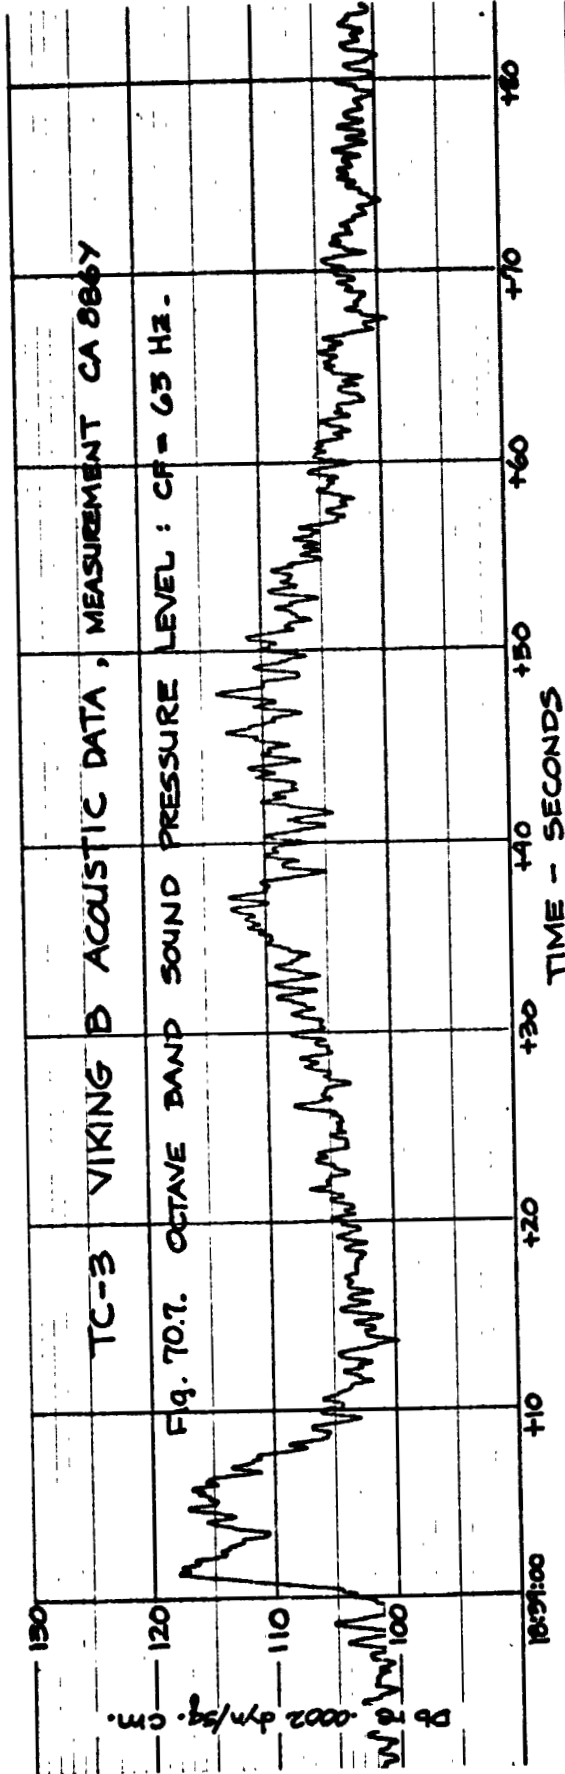 TC-3 VIKING B ACOUSTIC DATA, MEASUREMENT CA 886Y
Fig. 70.7. OCTAVE BAND SOUND PRESSURE LEVEL : CF = 63 Hz.
130
120
110
100
.0002 dyn/sq. cm.
18:39:00 +10 +20 +30 +40 +50 +60 +70 +80
TIME - SECONDS